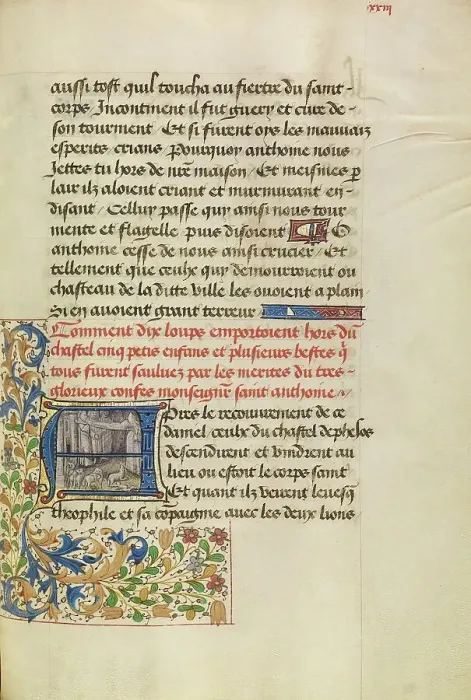 xxiij
aussi tost quil toucha au fiertre du saint
corps Incontinent il fut guery et cure de
son tourment Et si furent oys les mauuaiz
esperits crians Pourquoy anthoine nous
Jettes tu hors de nre maison Et meismes p
lair ilz aloient criant et murmurant en
disant Celluy passe quy ainsi nous tour
mente et flagelle puis disoient O
anthoine cesse de nous ainsi crucier Et
tellement que ceulx quy demouroient ou
chasteau de la ditte ville les ouoient a plain
Si en auoient grant terreur
Comment dix loups emportoient hors du
chastel cinq petis enfans et plusieurs bestes q
tous furent sauluez par les merites du tres
glorieux confes monseignr saint anthoine
Apres le recouurement de ce
daniel ceulx du chastel dephelos
descendirent et vindrent au
lieu ou estoit le corps saint
Et quant ilz veirent leuesq
theophile et sa cōpaignie auec les deux lions